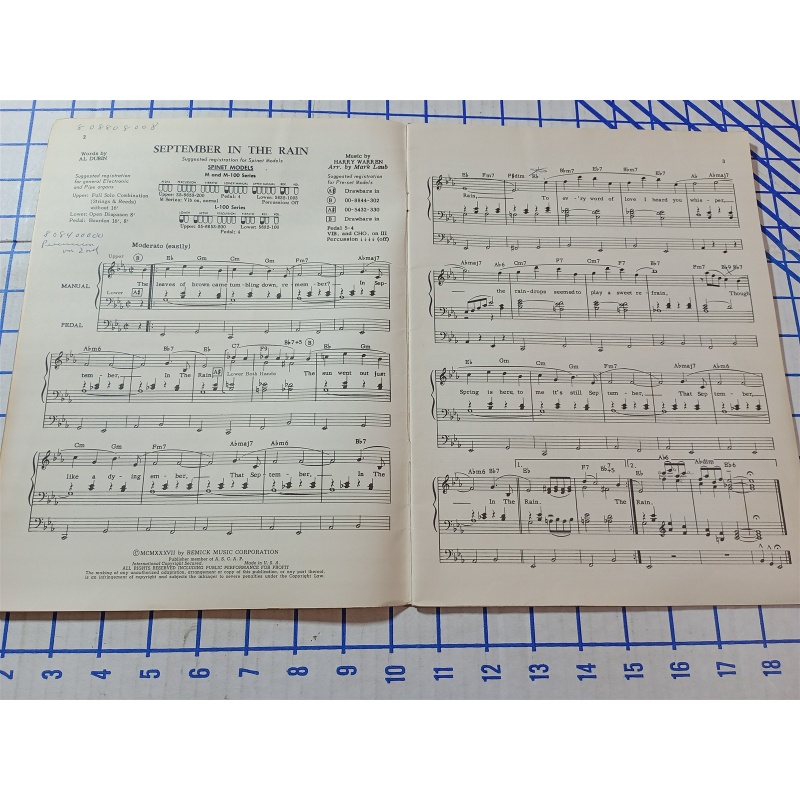 8 08808 008
2
Words by
AL DUBIN
SEPTEMBER IN THE RAIN
Suggested registration for Spinet Models
SPINET MODELS
M and M-100 Series
Music by
HARRY WARREN
Arr. by Mark Laub
Suggested registration
for general Electronic
and Pipe organs
Upper: Full Solo Combination
(Strings & Reeds)
without 16'
Lower: Open Diapason 8'
Pedal: Bourdon 16', 8'
Pedal: 4
M Series: Vib on, normal
Percussion Off
L-100 Series
Pedal: 4
Suggested registration
for Pre-set Models
A# Drawbars in
B 00-8844-302
A# 00-5432-330
B Drawbars in
Pedal 5-4
VIB. and CHO. on III
Percussion (off)
808400000
Percussion
on 2nd
Moderato (easily)
Upper B Eb Gm Cm Gm Fm7 Abmaj7
MANUAL
Lower A#
The leaves of brown came tum-bling down, re-mem-ber? In Sep-
PEDAL
Abm6 Bb7 Eb C7 F9 Bb7+5 B Eb Gm
tem-ber, In The Rain. A# Lower Both Hands The sun went out just
Cm Gm Fm7 Abmaj7 Abm6 Bb7
like a dy-ing em-ber, That Sep-tem-ber, In The
©MCMXXXVII by REMICK MUSIC CORPORATION
Publisher member of A. S. C. A. P.
International Copyright Secured. Made in U. S. A.
ALL RIGHTS RESERVED INCLUDING PUBLIC PERFORMANCE FOR PROFIT
The making of any unauthorized adaptation, arrangement or copy of this publication, or any part thereof,
is an infringement of copyright and subjects the infringer to severe penalties under the Copyright Law.
3
Eb Fm7 F#dim Bbm7 Eb7 Bbm7 Eb7 Ab Abmaj7
Rain. To ev-'ry word of love I heard you whis-per,
Abmaj7 Ab6 Cm7 F7 Cm7 F7 Fm7 Bb7
the rain-drops seemed to play a sweet re-frain, Though
Eb Gm Cm Gm Fm7 Abmaj7 Abm6
Spring is here, to me it's still Sep-tem-ber, That Sep-tem-ber,
Abm6 Bb7 1. Eb F7 2. Ab6 Abdim Eb6
In The Rain. The Rain.
2 3 4 5 6 7 8 9 10 11 12 13 14 15 16 17 18